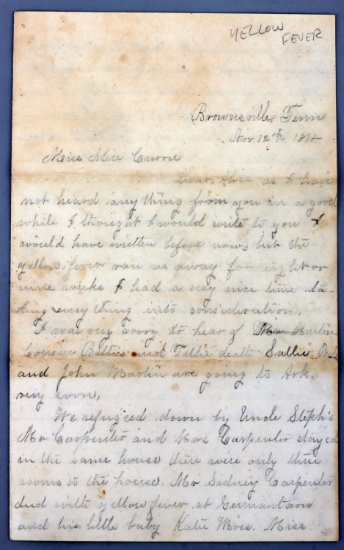 YELLOW
FEVER
Brownsville, Tenn
Nov 12th 18
Miss Alice Currie
Dear Alice as I have
not heard anything from you in a good
while I thought I would write to you I
would have written before now but the
yellow fever ran us away for eight or
nine weeks I had a very nice time ta-
king everything into consideration.
I was very sorry to hear of Martin
Cousin Betties and death Sallie
and John Martin are going to Ark.
very soon,
We refugeed down by Uncle Steph's
Mr Carpenter and Mrs Carpenter stayed
in the same house there were only three
rooms to the house. Mr Sidney Carpenter
died with yellow fever at Germantown
and his little baby Katie Miss